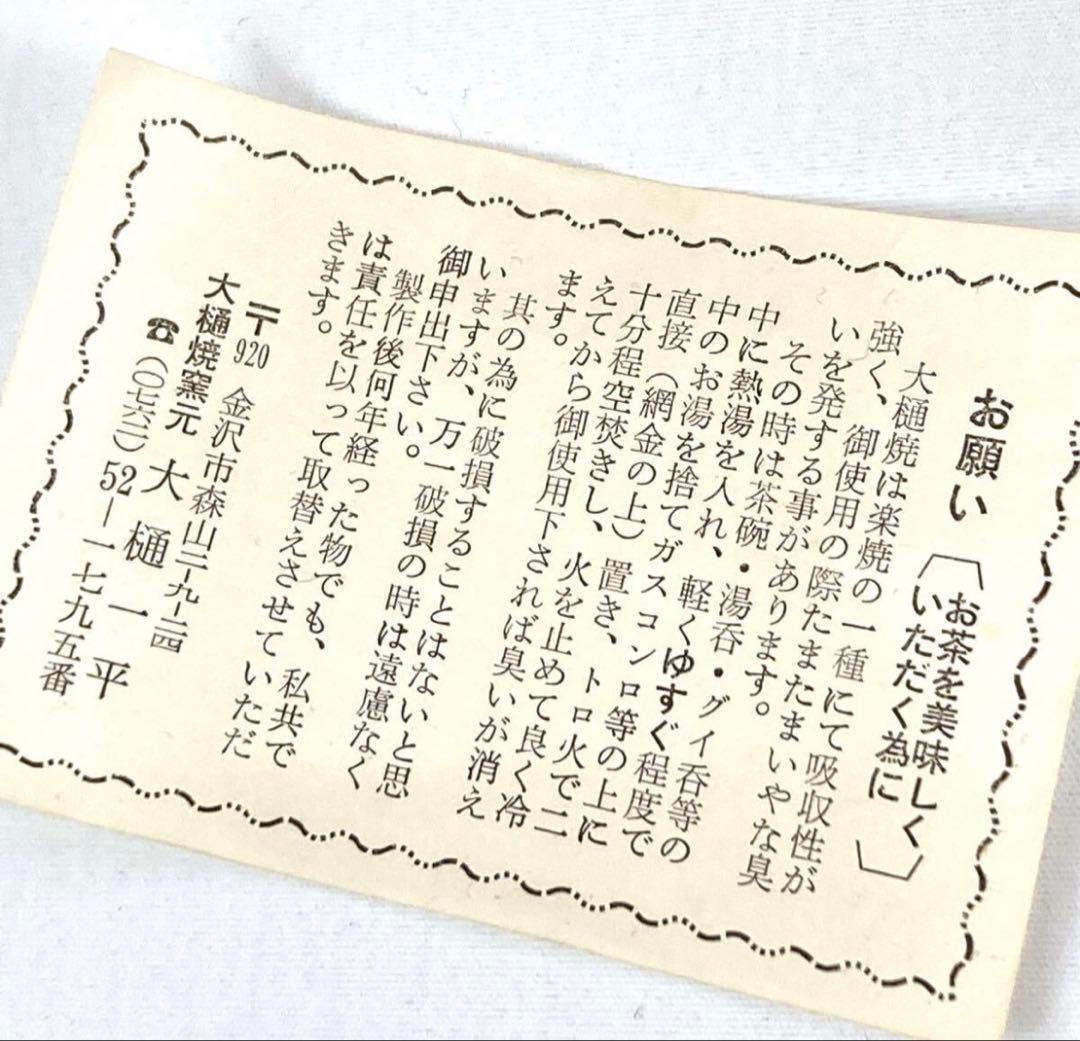 お願い
お茶を美味しく
いただく為に
大樋焼は楽焼の一種にて吸収性が
強く、御使用の際たまたまいやな臭
いを発する事があります。
その時は茶碗・湯呑・グイ呑等の
中に熱湯を入れ、軽くゆすぐ程度で
中のお湯を捨てガスコンロ等の上に
直接（網金の上）置き、トロ火で二
十分程空焚きし、火を止めて良く冷
えてから御使用下されば臭いが消え
ます。
其の為に破損することはないと思
いますが、万一破損の時は遠慮なく
御申出下さい。
製作後何年経った物でも、私共で
は責任を以って取替えさせていただ
きます。
〒920 金沢市森山二-九-二四
大樋焼窯元 大樋一平
☎（〇七六二）52―一七九五番